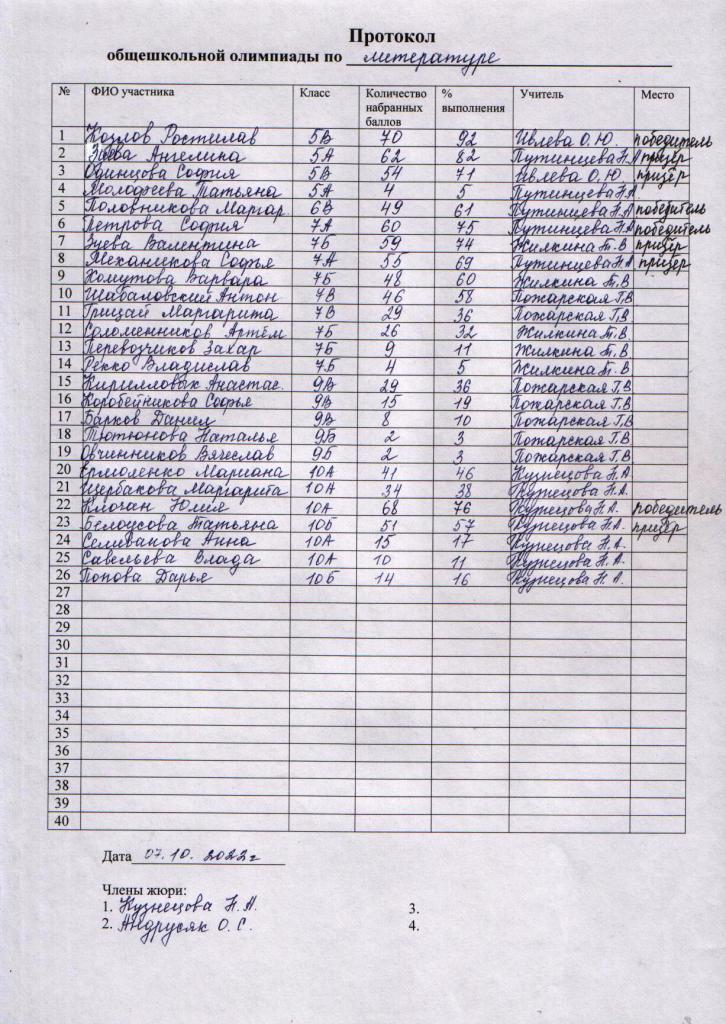 Протокол
общешкольной олимпиады по литературе
№ ФИО участника Класс Количество набранных баллов % выполнения Учитель Место
1 Козлов Ростислав 5В 70 92 Ивлева О.Ю. победитель
2 Зуева Ангелина 5А 62 82 Путинцева Н.А призёр
3 Одинцова София 5В 54 71 Ивлева О.Ю. призёр
4 Молофеева Татьяна 5А 4 5 Путинцева Н.А.
5 Половникова Маргар. 6В 49 61 Путинцева Н.А победитель
6 Петрова София 7А 60 75 Путинцева Н.А победитель
7 Зуева Валентина 7Б 59 74 Жилкина Т.В призёр
8 Механикова Софья 7А 55 69 Путинцева Н.А призёр
9 Хомутова Варвара 7Б 48 60 Жилкина Т.В
10 Шабаловский Антон 7В 46 58 Пожарская Г.В.
11 Грицай Маргарита 7В 29 36 Пожарская Г.В.
12 Соломенников Артём 7Б 26 32 Жилкина Т.В.
13 Перевозчиков Захар 7Б 9 11 Жилкина Т.В.
14 Рекко Владислав 7Б 4 5 Жилкина Т.В.
15 Кирилловых Анастас. 9В 29 36 Пожарская Г.В.
16 Коробейникова Софья 9В 15 19 Пожарская Г.В
17 Барков Данил 9В 8 10 Пожарская Г.В.
18 Тютюнова Наталья 9Б 2 3 Пожарская Г.В
19 Овчинников Вячеслав 9Б 2 3 Пожарская Г.В
20 Ермоленко Мариана 10А 41 46 Кузнецова Н.А
21 Щербакова Маргарита 10А 34 38 Кузнецова Н.А.
22 Клочан Юлия 10А 68 76 Кузнецова Н.А. победитель
23 Белоусова Татьяна 10Б 51 57 Кузнецова Н.А. призёр
24 Селиванова Анна 10А 15 17 Кузнецова Н.А.
25 Савельева Влада 10А 10 11 Кузнецова Н.А.
26 Попова Дарья 10Б 14 16 Кузнецова Н.А.
27
28
29
30
31
32
33
34
35
36
37
38
39
40
Дата 07.10.2022г
Члены жюри:
1. Кузнецова Н.А. 3.
2. Андрусяк О.С. 4.